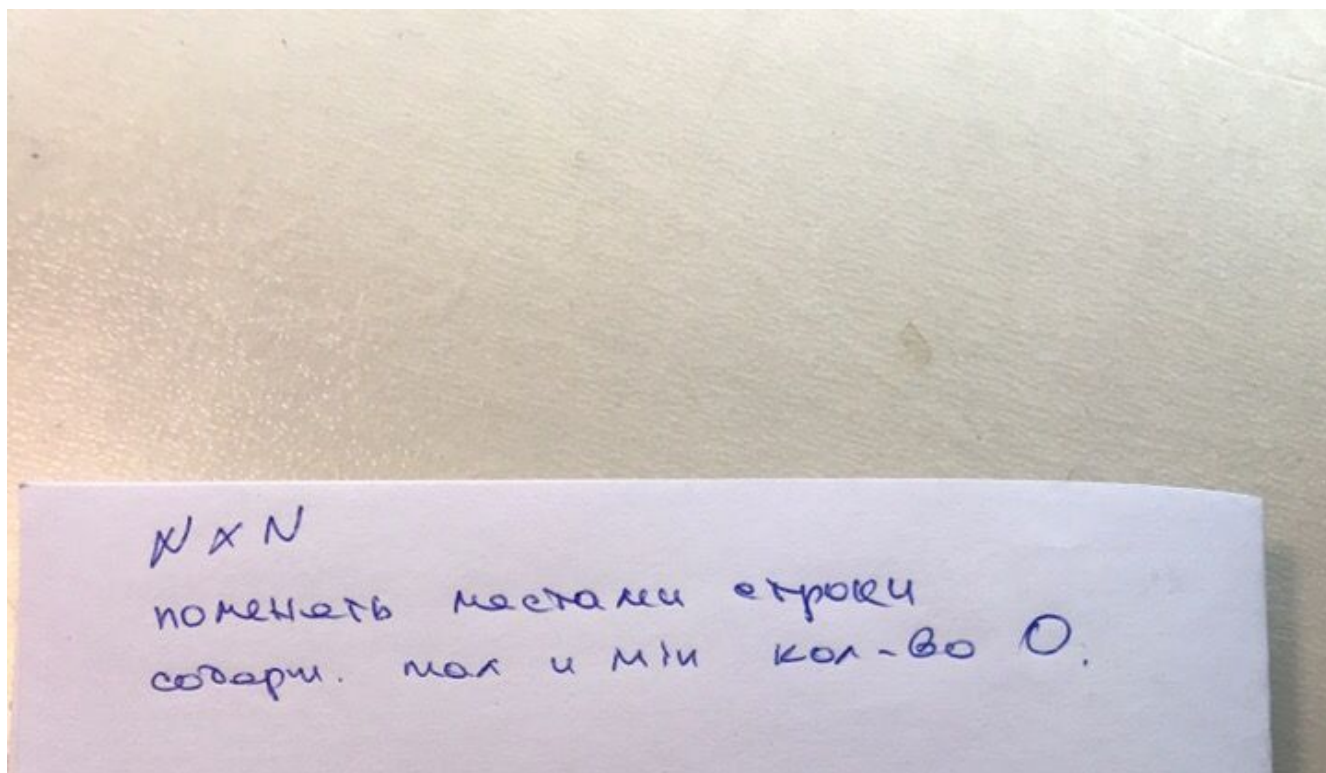 N x N
поменять местами строки
содерж. max и min кол-во 0.